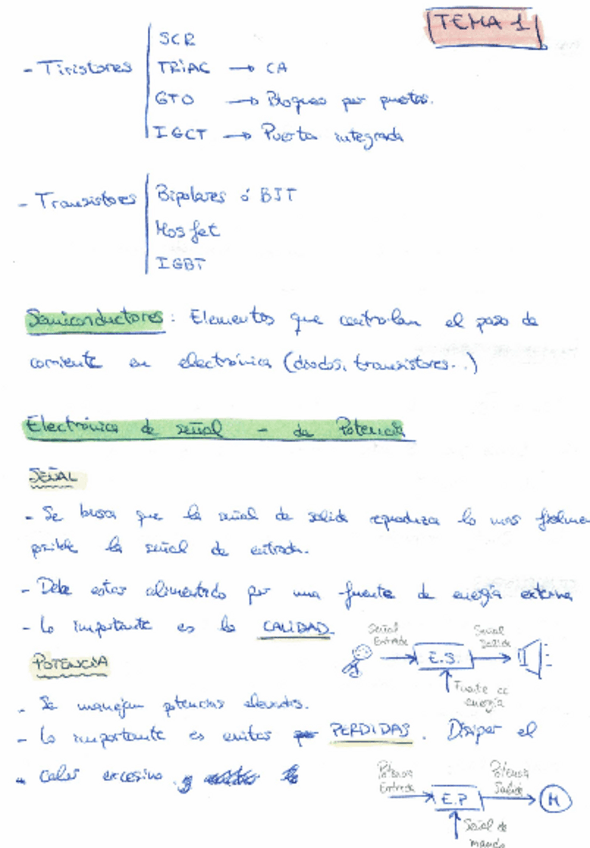 TEMA 1
- Tiristores
SCR
TRIAC → CA
GTO → Bloqueo por puerta.
IGCT → Puerta integrada
- Transistores
Bipolares ó BJT
Mosfet
IGBT
Semiconductores: Elementos que controlan el paso de
corriente en electrónica (diodos, transistores..)
Electrónica de señal - de Potencia
SEÑAL
- Se busca que la señal de salida reproduzca lo mas fielmen
posible la señal de entrada.
- Debe estar alimentado por una fuente de energía externa
- Lo importante es la CALIDAD.
Señal Entrada
E.S.
Señal Salida
Fuente cc energía
POTENCIA
- Se manejan potencias elevadas.
- Lo importante es evitar PERDIDAS. Disipar el
- calor excesivo y
Potencia Entrada
E.P
Potencia Salida
M
Señal de mando